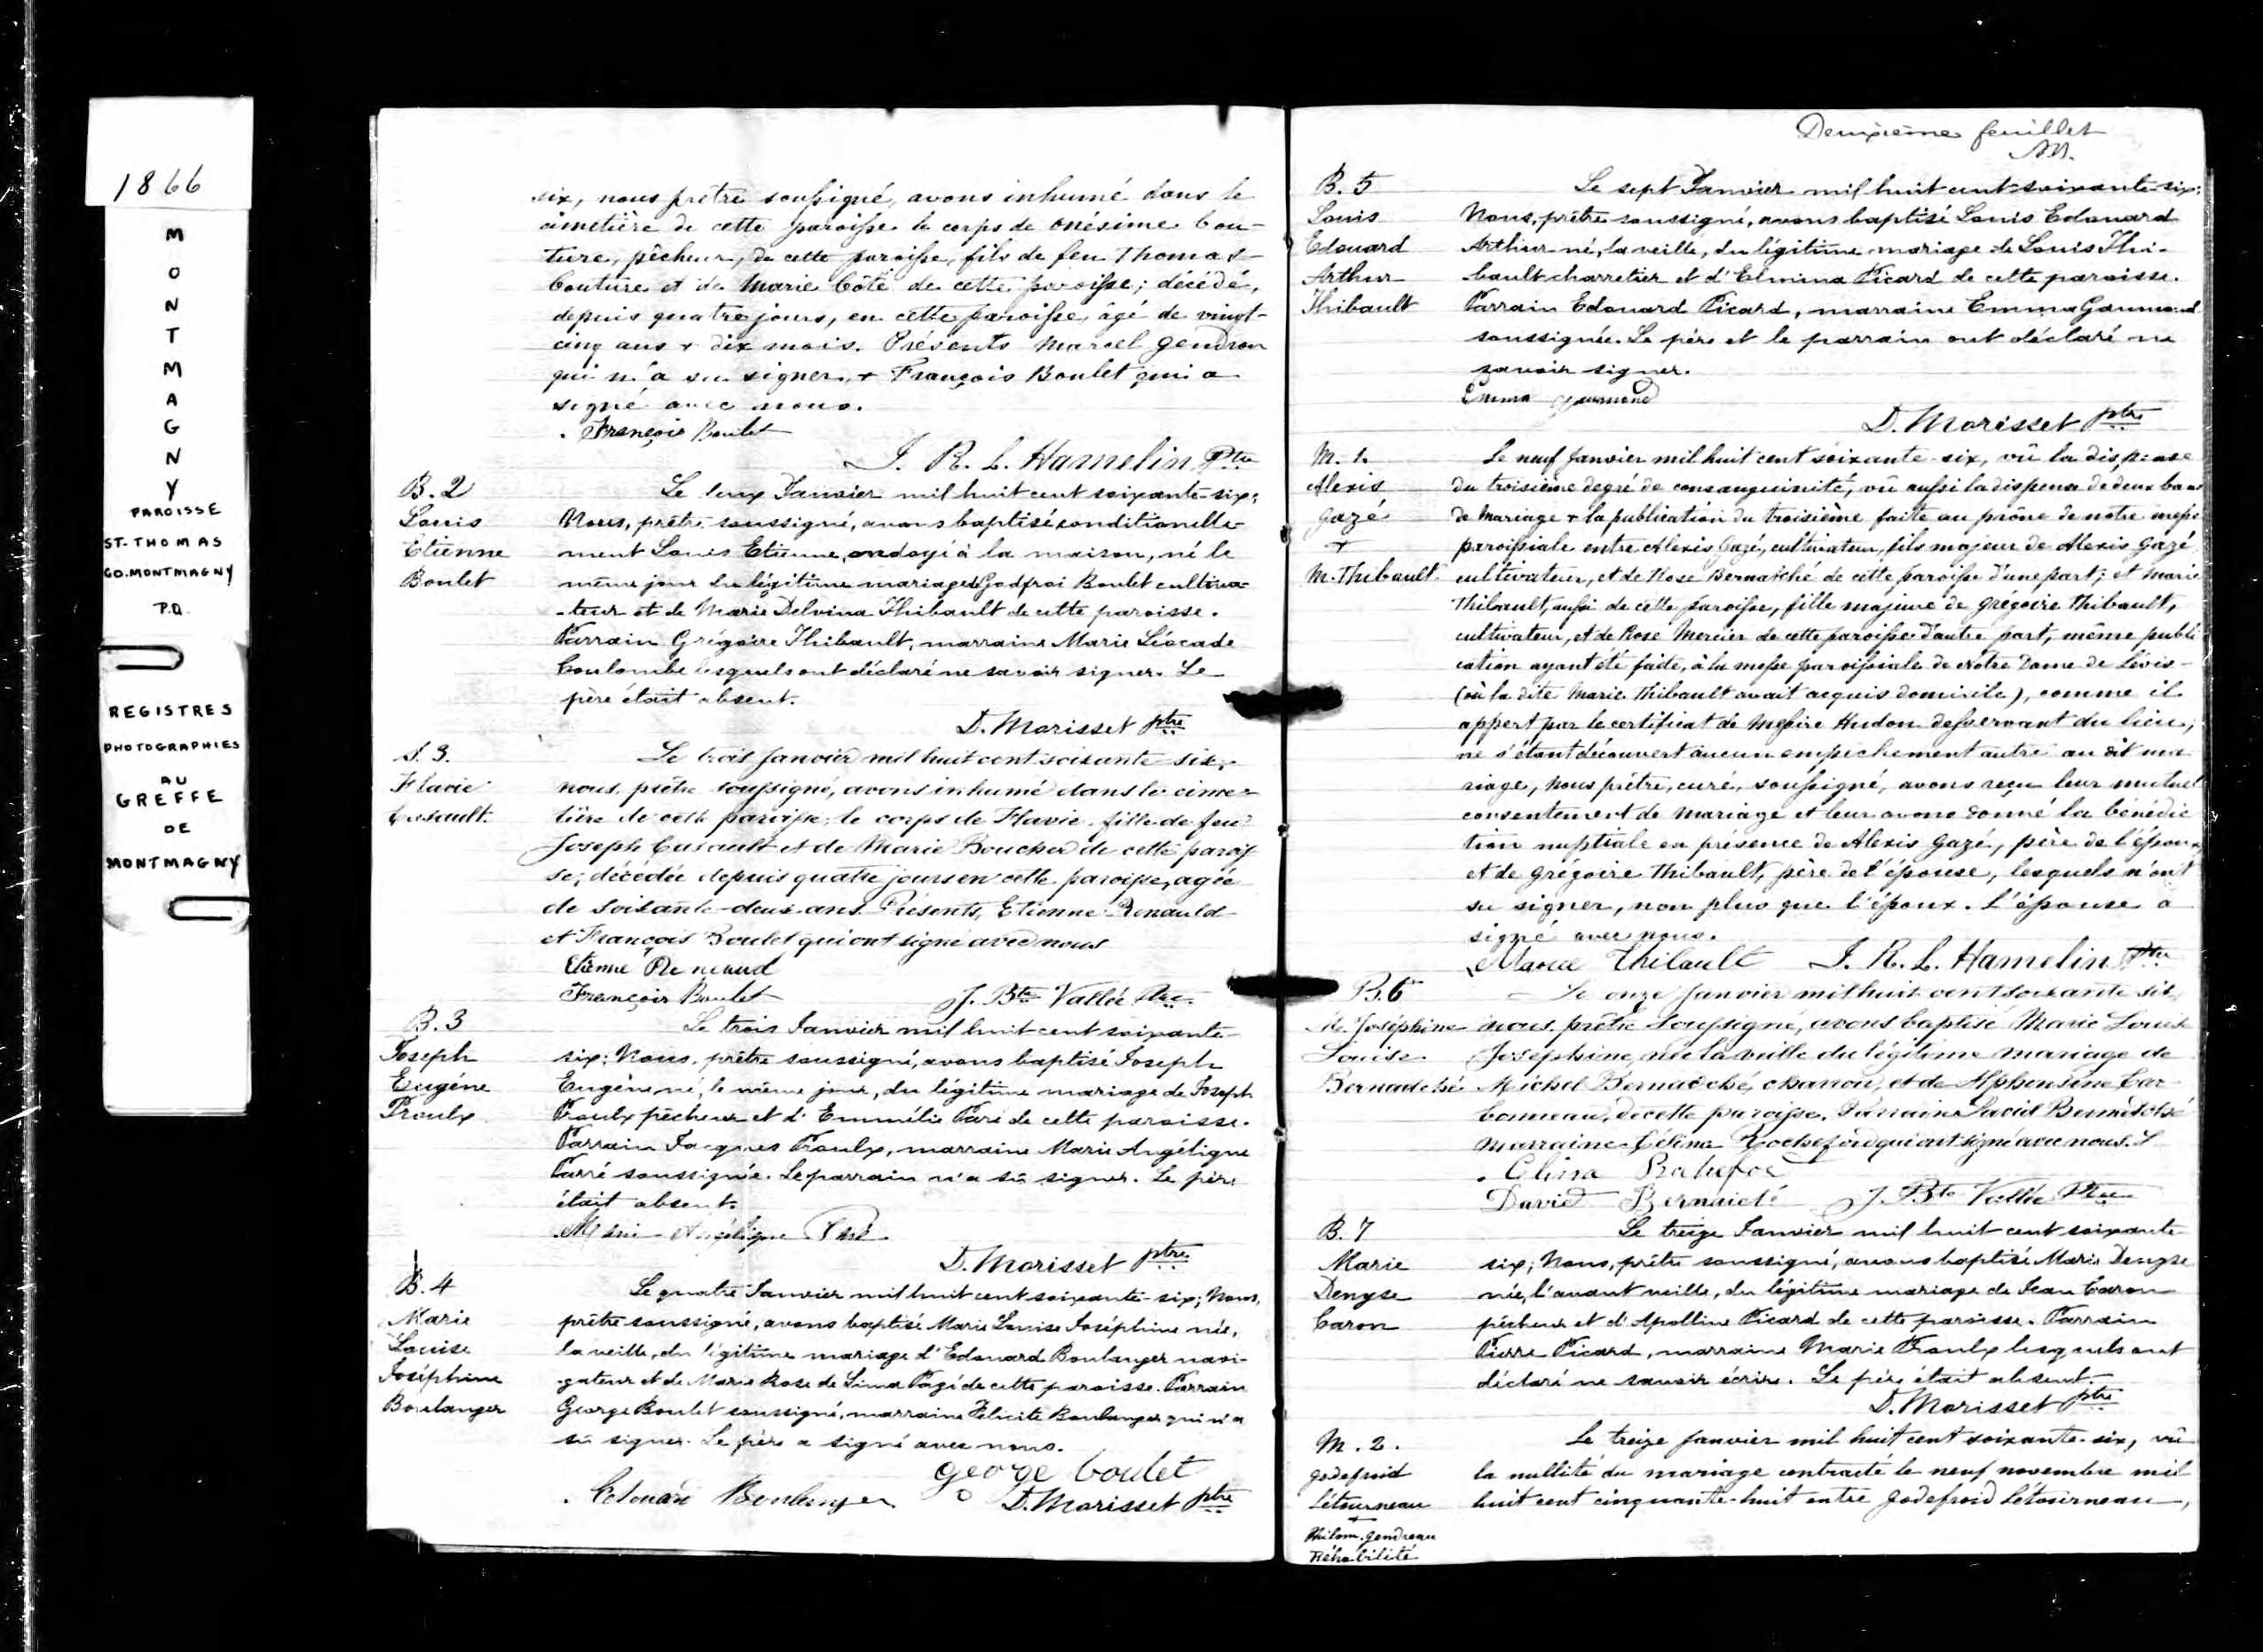 1866
MONTMAGNY
PAROISSE
ST. THOMAS
CO. MONTMAGNY
P.Q.
REGISTRES
PHOTOGRAPHIES
AU
GREFFE
DE
MONTMAGNY
six, nous prêtre soussigné, avons inhumé dans le
cimetière de cette paroisse le corps de Onésime Cou-
ture, pêcheur, de cette paroisse, fils de feu Thomas
Couture et de Marie Côté de cette paroisse; décédé,
depuis quatre jours, en cette paroisse, âgé de vingt-
cinq ans & dix mois. Présents Marcel Gendron
qui n'a su signer, & François Boulet qui a
signé avec nous.
François Boulet
J. R. L. Hamelin Ptre
B. 2
Louis
Etienne
Boulet
Le deux Janvier mil huit cent soixante-six;
Nous, prêtre soussigné, avons baptisé conditionelle-
ment Louis Etienne, ondoyé à la maison, né le
même jour du légitime mariage de Godfroi Boulet cultiva-
-teur et de Marie Delvina Thibault de cette paroisse.
Parrain Grégoire Thibault, marraine Marie Léocade
Coulombe lesquels ont déclaré ne savoir signer. Le
père était absent.
D. Morisset Ptre
S. 3.
Flavie
Casault.
Le trois Janvier mil huit cent soixante six,
nous, prêtre soussigné, avons inhumé dans le cime-
tière de cette paroisse, le corps de Flavie fille de feu
Joseph Casault et de Marie Boucher de cette parois
se; décédée depuis quatre jours en cette paroisse, agée
de soixante-deux ans. Présents, Etienne Renauld
et François Boulet qui ont signé avec nous
Etienne Renaud
François Boulet
J. Bte Vallée Ptre
B. 3
Joseph
Eugène
Proulx
Le trois Janvier mil huit cent soixante-
six: Nous, prêtre soussigné, avons baptisé Joseph
Eugène né, le même jour, du légitime mariage de Joseph
Proulx pêcheur et d'Emmélie Paré de cette paroisse.
Parrain Jacques Proulx, marraine Marie Angélique
Parré soussignée. Le parrain n'a sû signer. Le père
était absent.
Marie Angélique Paré
D. Morisset Ptre
B. 4
Marie
Louise
Joséphine
Boulanger
Le quatre Janvier mil huit cent soixante-six; Nous,
prêtre soussigné, avons baptisé Marie Louise Joséphine née,
la veille, du légitime mariage d'Edouard Boulanger navi-
gateur et de Marie Rose de Lima Pagé de cette paroisse. Parrain
George Boulet soussigné, marraine Félicité Boulanger qui n'a
sû signer. Le père a signé avec nous.
George boulet
Edouard Boulanger
D. Morisset Ptre
Deuxième feuillet
B. 5
Louis
Edouard
Arthur
Thibault
Le sept Janvier mil huit cent soixante-six:
Nous, prêtre soussigné, avons baptisé Louis Edouard
Arthur né, la veille, du légitime mariage de Louis Thi-
bault charretier et d'Elmina Picard de cette paroisse.
Parrain Edouard Picard, marraine Emma Gaumond
soussignée. Le père et le parrain ont déclaré ne
savoir signer.
Emma gaumond
D. Morisset Ptre
M. 1.
Alexis
Gazé
&
M. Thibault.
Le neuf Janvier mil huit cent soixante-six, vû la dispense
du troisième degré de consanguinité, vû aussi la dispense de deux bans
de Mariage & la publication du troisième faite au prône de notre messe
paroissiale entre Alexis Gazé, cultivateur, fils majeur de Alexis Gazé
cultivateur, et de Rose Bernatché de cette paroisse d'une part; et Marie
Thibault, aussi de cette paroisse, fille majeure de Grégoire Thibault,
cultivateur, et de Rose Mercier de cette paroisse d'autre part; même publi
cation ayant été faite, à la messe paroissiale de Notre Dame de Lévis-
(où la dite Marie Thibault avait acquis domicile), comme il
appert par le certificat de Messire Hudon desservant du lieu;
ne s'étant découvert aucun empêchement autre au dit ma
riage, nous prêtre, curé, soussigné, avons reçu leur mutuel
consentement de mariage et leur avons donné la bénédic
tion nuptiale en présence de Alexis Gazé, père de l'époux,
et de Grégoire Thibault, père de l'épouse, lesquels n'ont
su signer, non plus que l'époux. L'épouse a
signé avec nous.
Marie Thibault J. R. L. Hamelin Ptre
B. 6
M. Joséphine
Louise
Bernatché
Le onze Janvier mil huit cent soixante six,
nous, prêtre soussigné, avons baptisé Marie Louise
Joséphine, née la veille du légitime mariage de
Michel Bernatché, charron, et de Alphonsine Car
bonneau, de cette paroisse. Parrain David Bernatché
marraine Célina Rochefort qui ont signé avec nous.
Célina Rochefor
David Bernaiché J. Bte Vallée Ptre
B. 7
Marie
Denyse
Caron
Le treize Janvier mil huit cent soixante
six; Nous, prêtre soussigné, avons baptisé Marie Denyse
née, l'avant veille, du légitime mariage de Jean Caron
pêcheur et d'Apolline Picard de cette paroisse. Parrain
Pierre Picard, marraine Marie Proulx lesquels ont
déclaré ne savoir écrire. Le père était absent.
D. Morisset Ptre
M. 2.
Godefroid
Létourneau
&
Philom. Gendreau
Réhabilité
Le treize Janvier mil huit cent soixante-six, vû
la nullité du mariage contracté le neuf novembre mil
huit cent cinquante-huit entre Godefroid Létourneau,